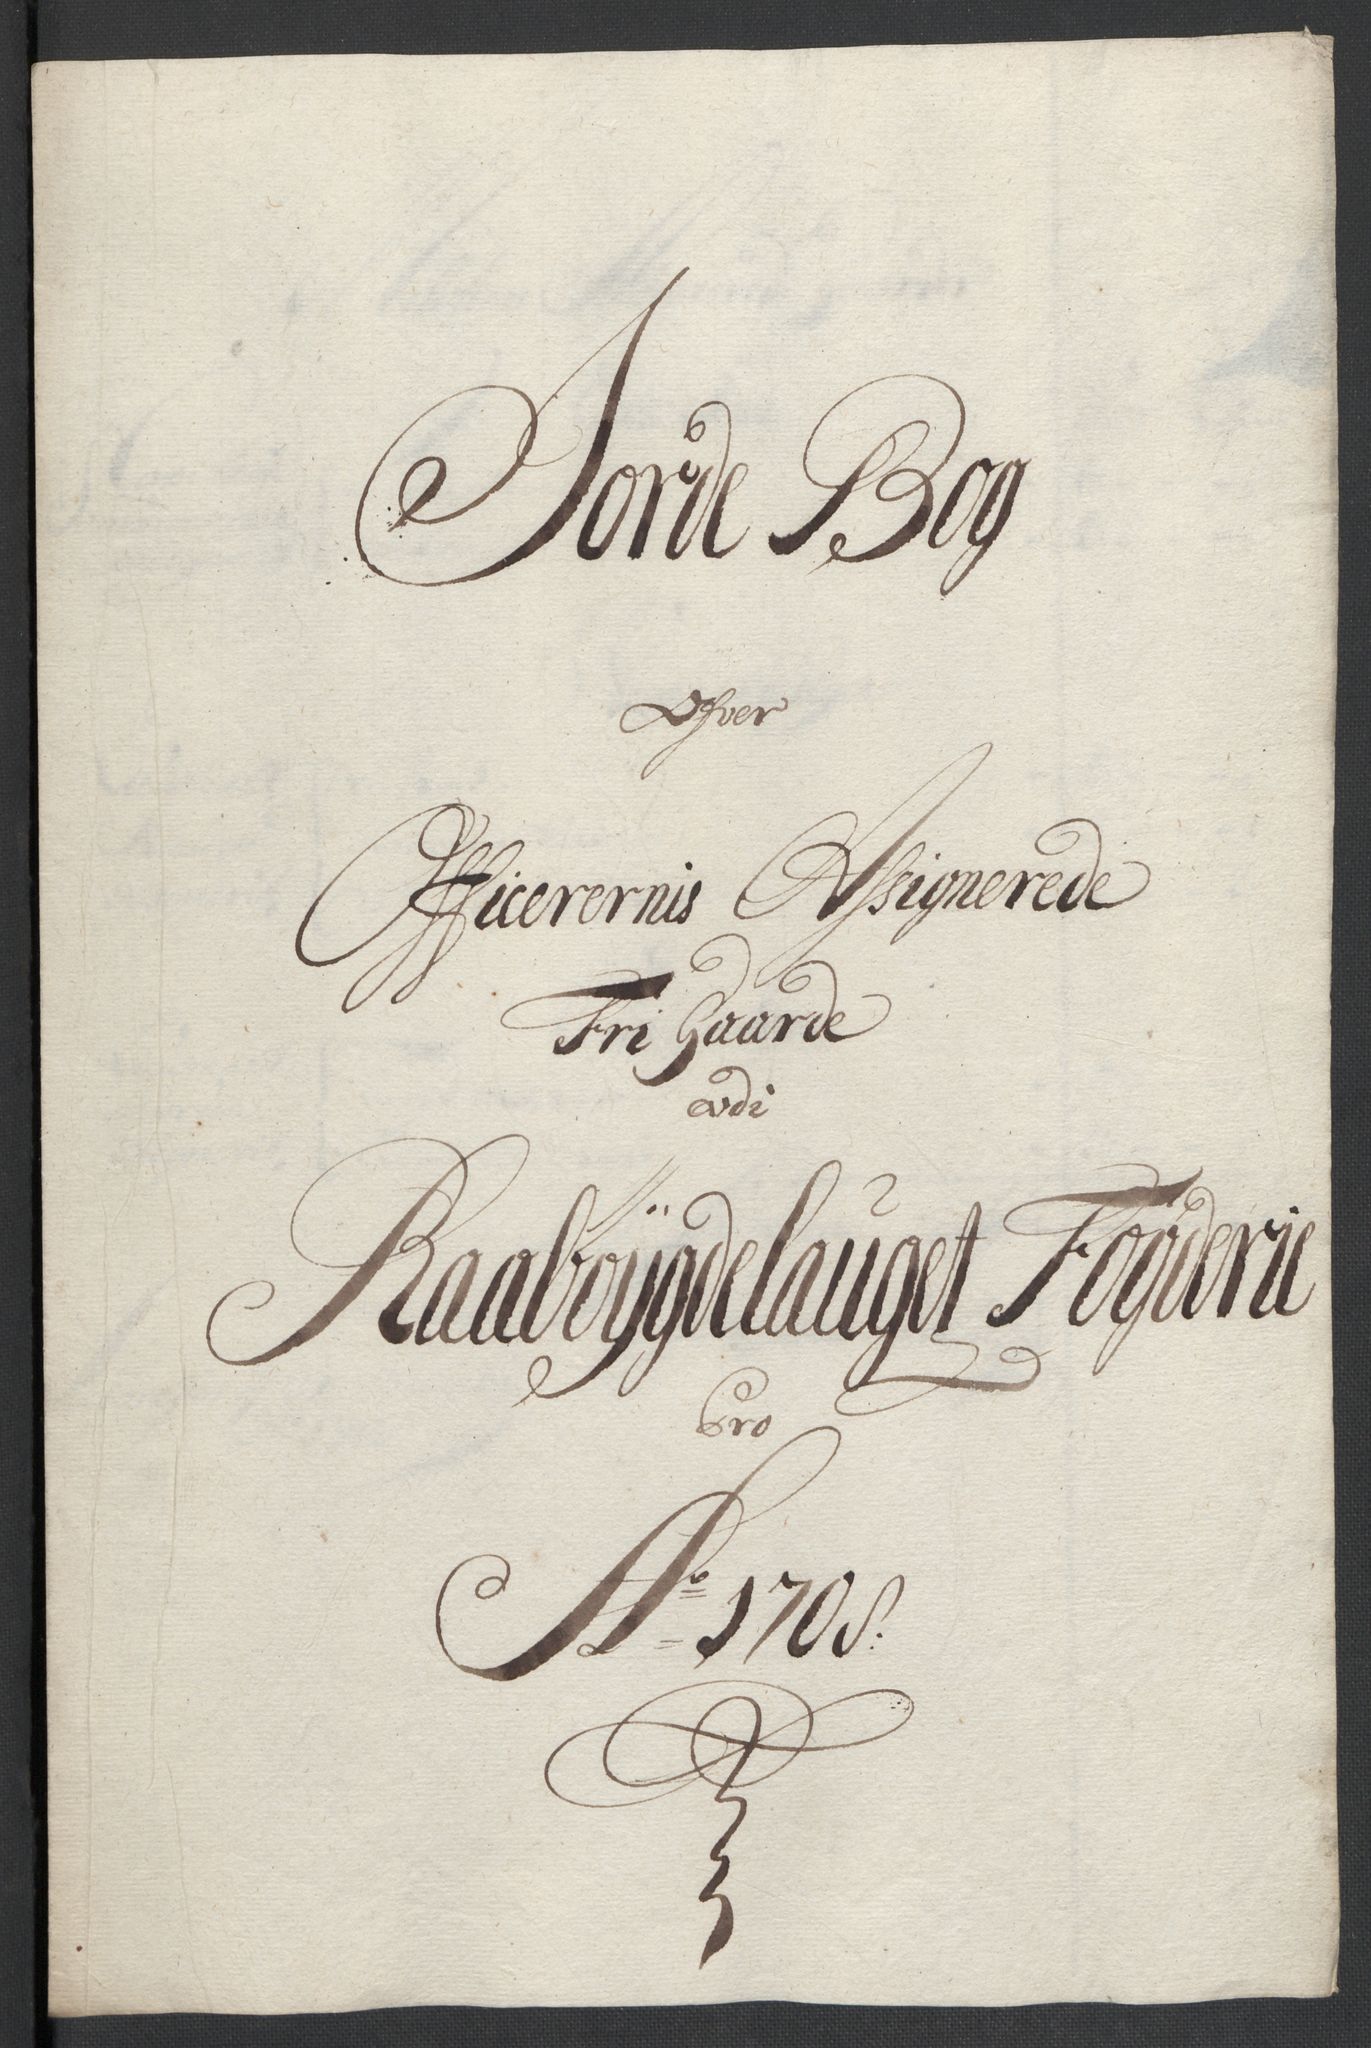 Jorde Bog
Ofver
Officerernis Assignerede
Fri Gaarde
udi
Raaboÿgdelauget Fogderie
Pro
Ao 1708.